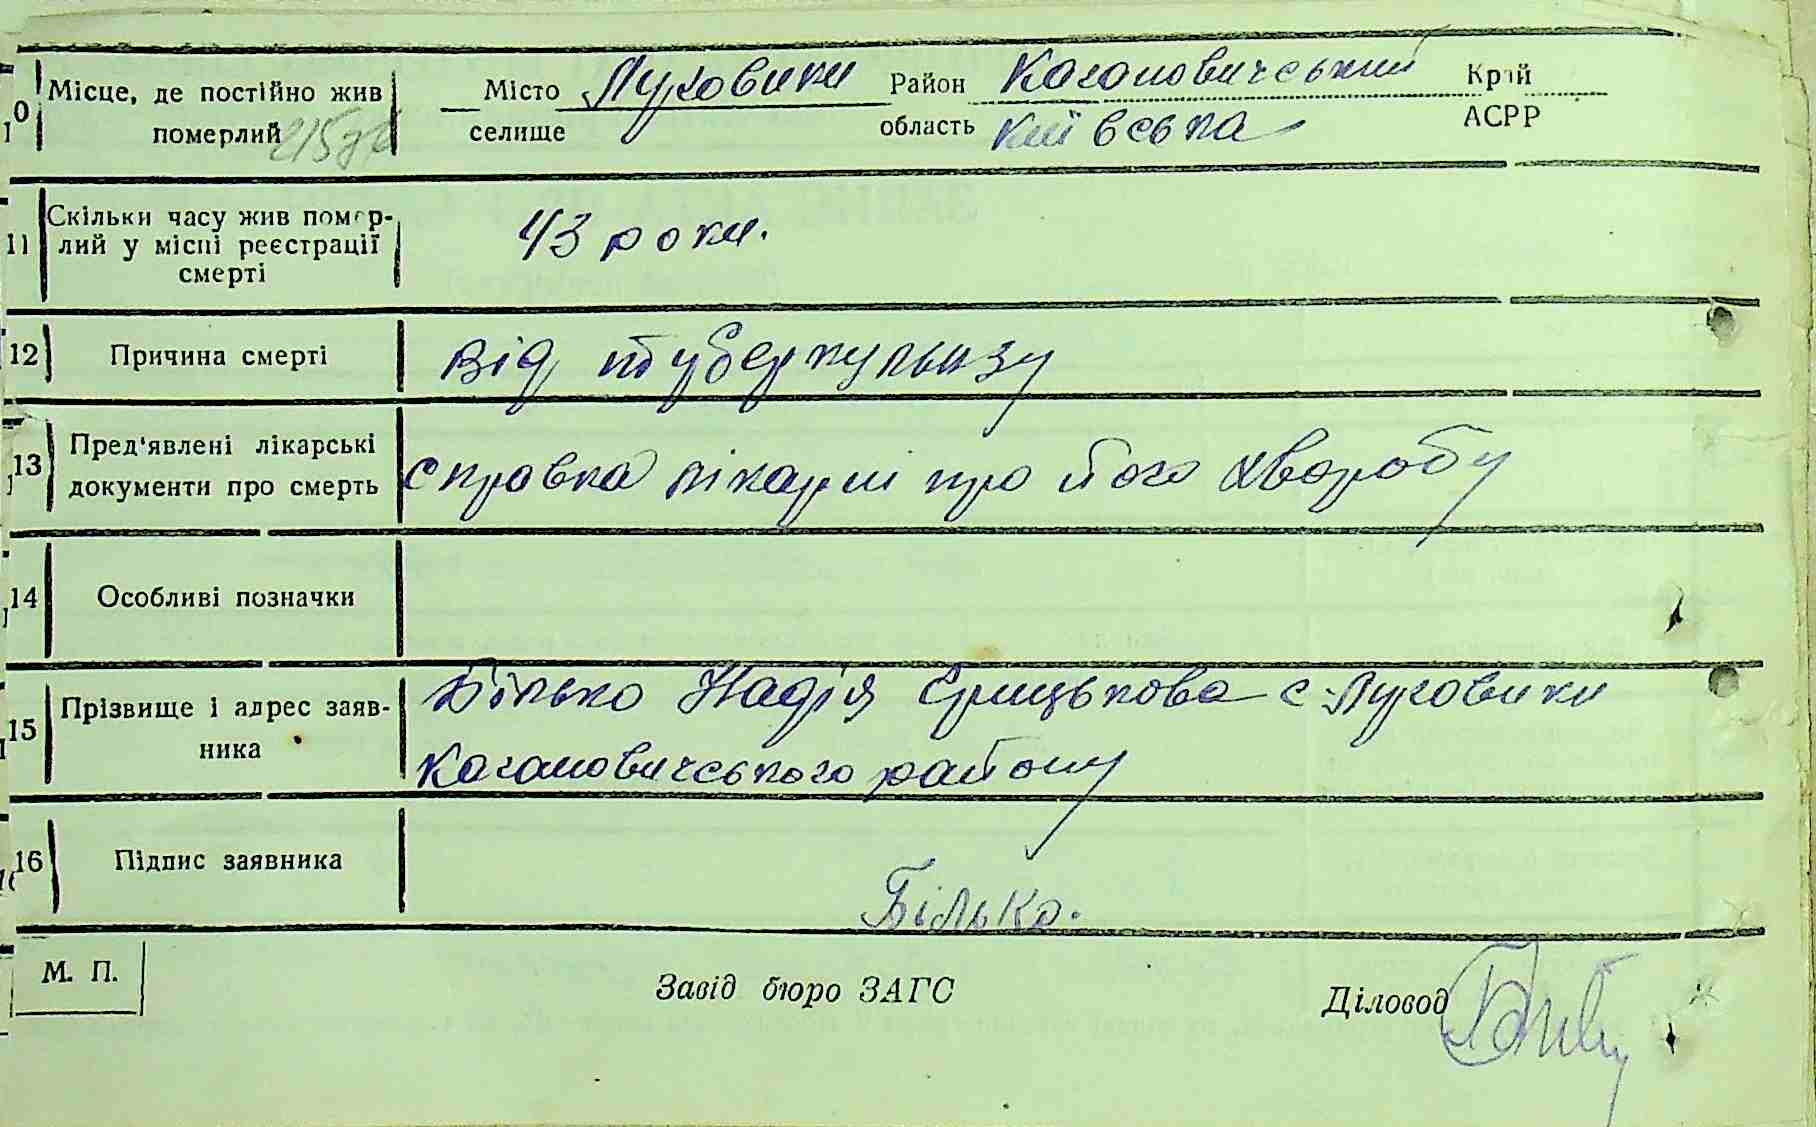 10 Місце, де постійно жив Місто Луговики Район Кагановичський Край
померлий селище область київська АСРР
11 Скільки часу жив помер-
лий у місці реєстрації
смерті
43 роки.
12 Причина смерті від туберкульозу
13 Пред'явлені лікарські
документи про смерть
справка лікарні про його хворобу
14 Особливі позначки
15 Прізвище і адрес заяв- Білько Надія Грицькова с. Луговики
ника Кагановичського району
16 Підпис заявника
Білько.
М. П. Завід бюро ЗАГС Діловод